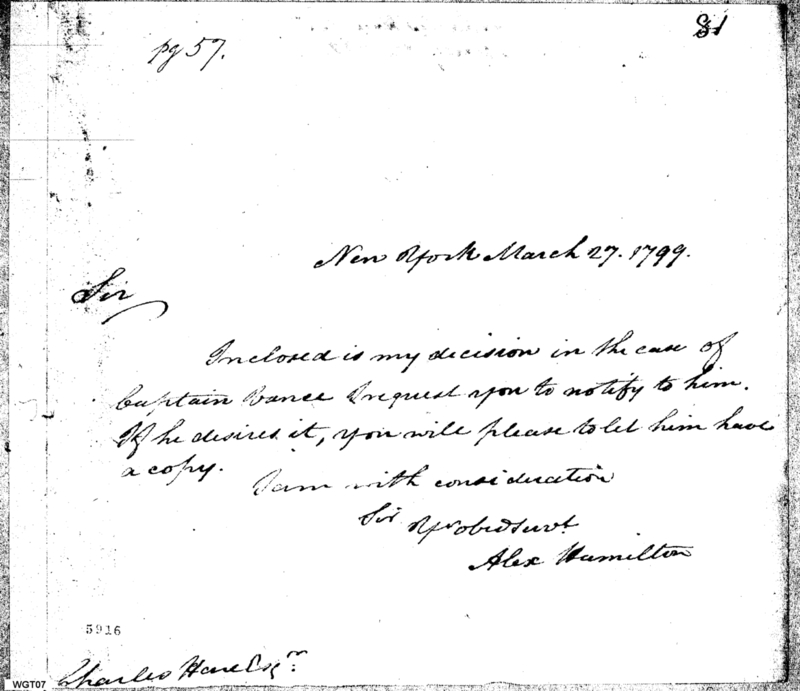 pg 57.
81
New York March 27. 1799.
Sir
Inclosed is my decision in the case of
Captain Vance I request you to notify to him.
If he desires it, you will please to let him have
a copy.
I am with consideration
Sir Yr obed servt
Alex Hamilton
5916
Charles Hare Esqr.
WGT07